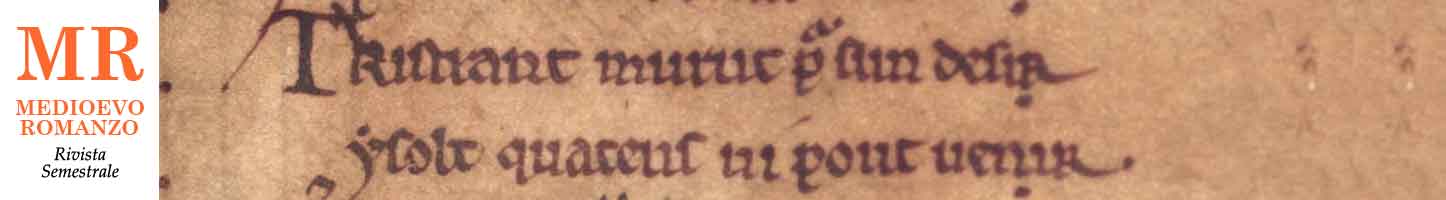 MR
MEDIOEVO
ROMANZO
Rivista
Semestrale
Tristrant murut pͣ sun desir
ẏsolt qua tens ni pout uenir.